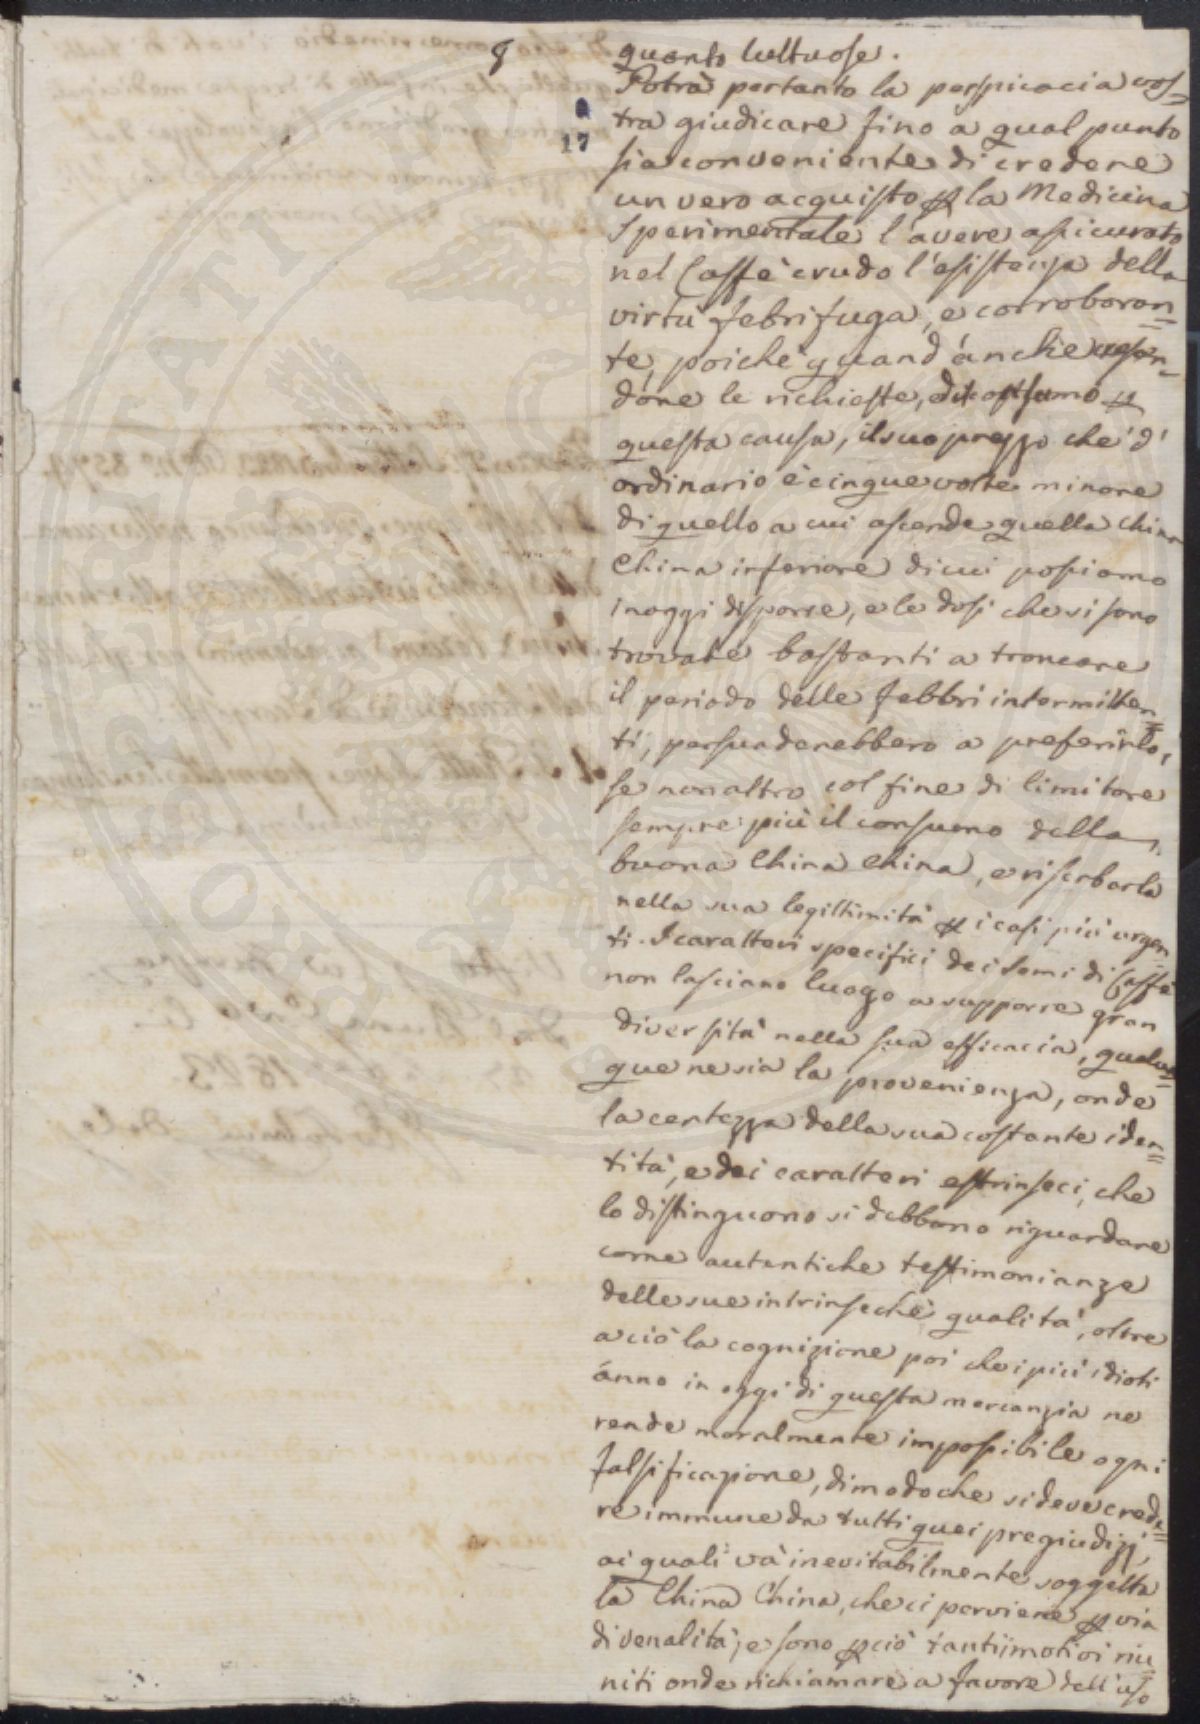 8
17
quanto luttuose.
Potrà pertanto la perspicacia vos=
tra giudicare fino a qual punto
sia conveniente di credere
un vero acquisto p la Medicina
Sperimentale l'avere assicurato
nel Caffè crudo l'esistenza della
virtù febrifuga, e corroboran=
te, poichè quand'anche
le richieste, p
questa causa, il suo prezzo che d'
ordinario è cinque volte minore
di quello a cui ascende quella china
China inferiore di cui possiamo
inoggi disporre, e le dosi che si sono
trovate bastanti a troncare
il periodo delle febbri intermitten=
ti, persuaderebbero a preferirlo,
se non altro col fine di limitare
sempre più il consumo della
buona China China, e riserbarla
nella sua legittimità p i casi più urgen=
ti. I caratteri specifici dei semi di Caffè
non lasciano luogo a supporre gran
diversità nella sua efficacia, qualun=
que ne sia la provenienza, onde
la certezza della sua costante iden=
tità, e dei caratteri estrinseci, che
lo distinguono si debbono riguardare
come autentiche testimonianze
delle sue intrinseche qualità, oltre
a ciò la cognizione poi che i più idioti
ànno in oggi di questa mercanzia ne
rende moralmente impossibile ogni
falsificazione, dimodoche si deve crede=
re immune da tutti quei pregiudizj,
ai quali và inevitabilmente soggetta
la China China, che ci perviene p via
di venalità, e sono p ciò tanti motivi riu=
niti onde richiamare a favore dell'uso